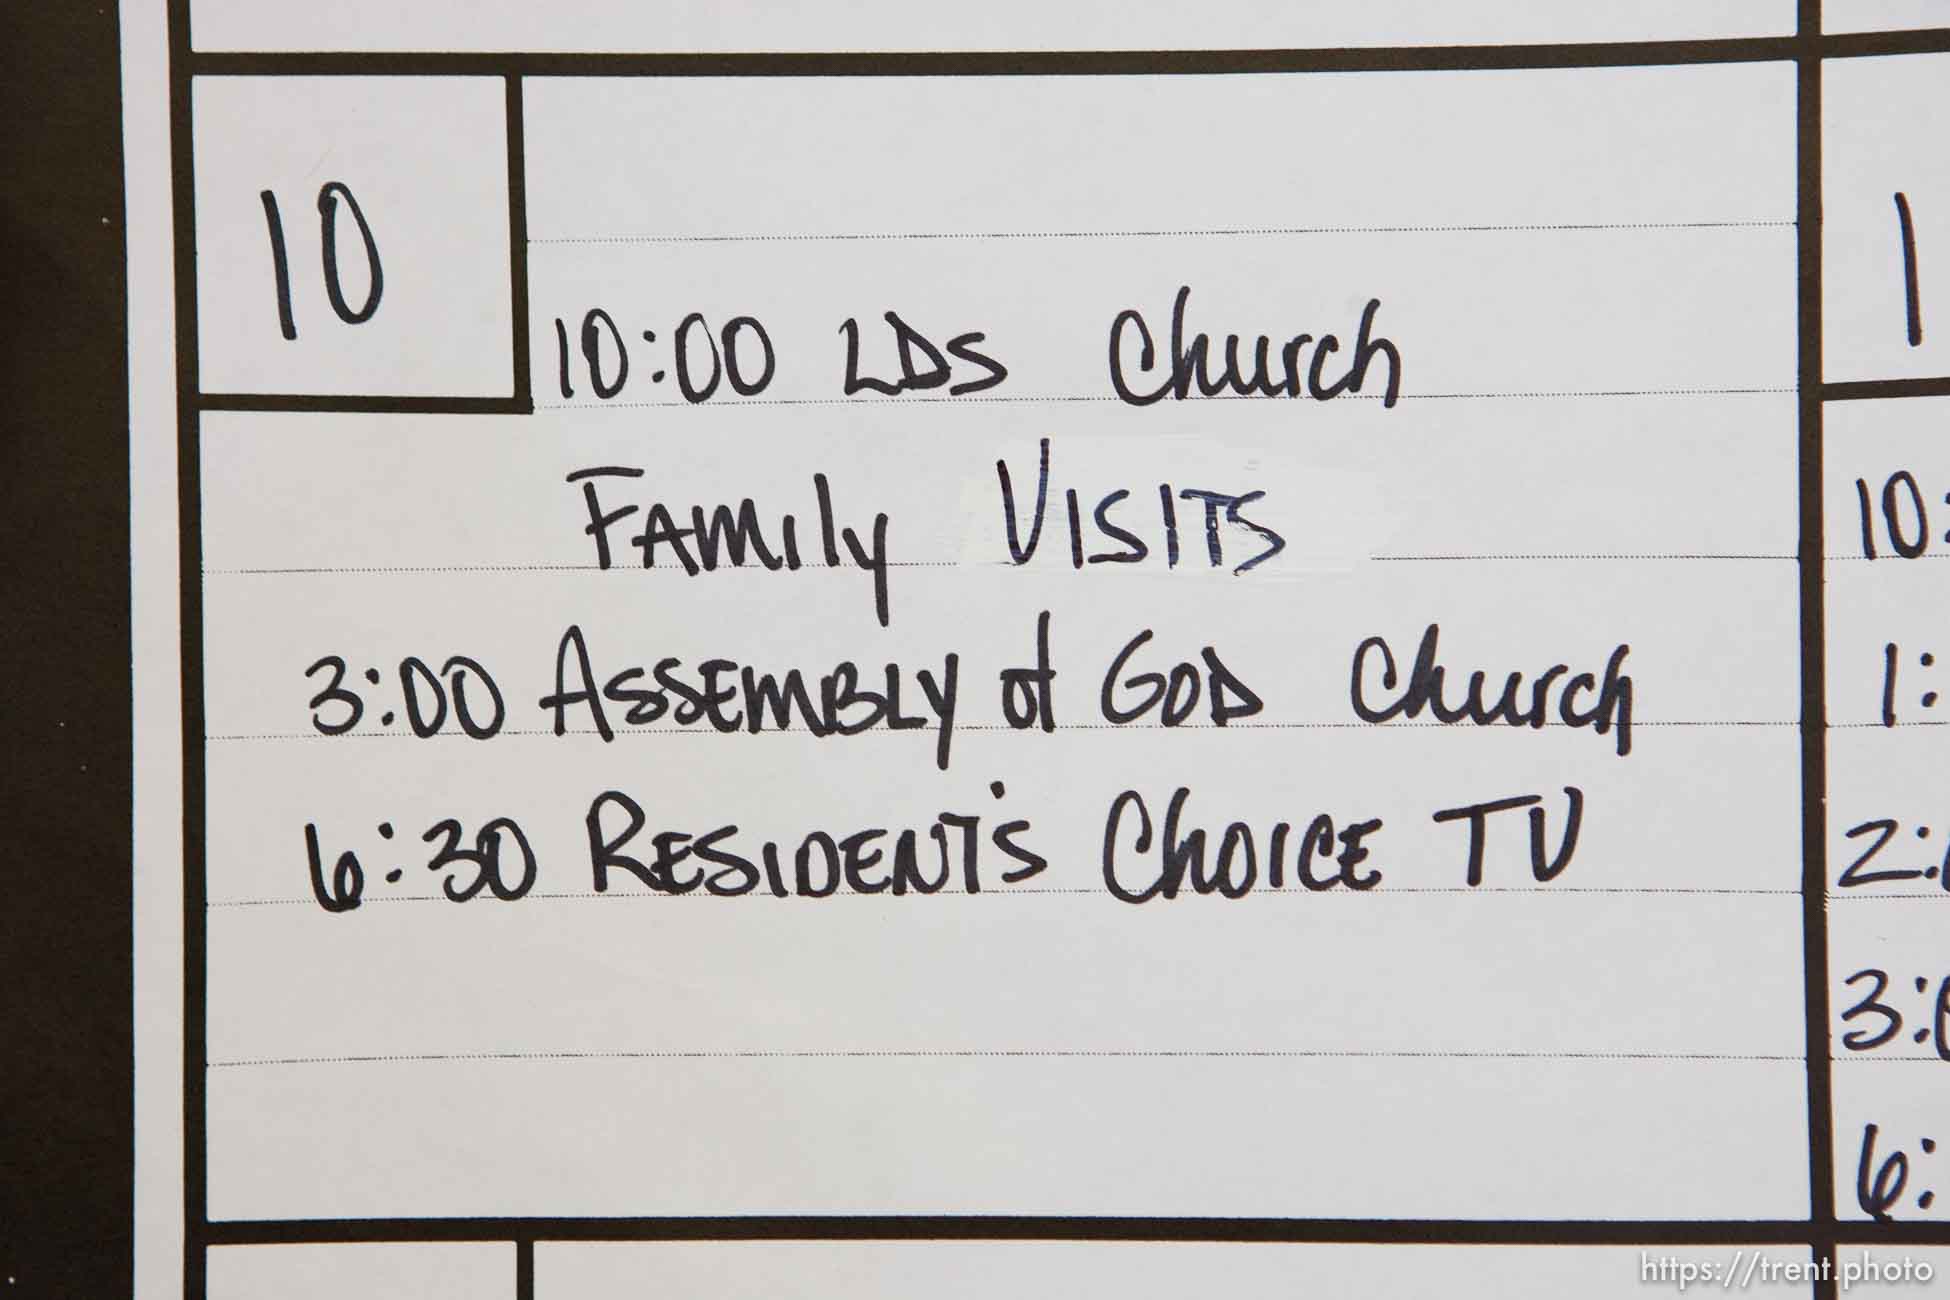 10
10:00 LDS Church
Family Visits
3:00 Assembly of God Church
6:30 Resident's Choice TV
1
10:
1:
2:
3:0
6:
https://trent.photo